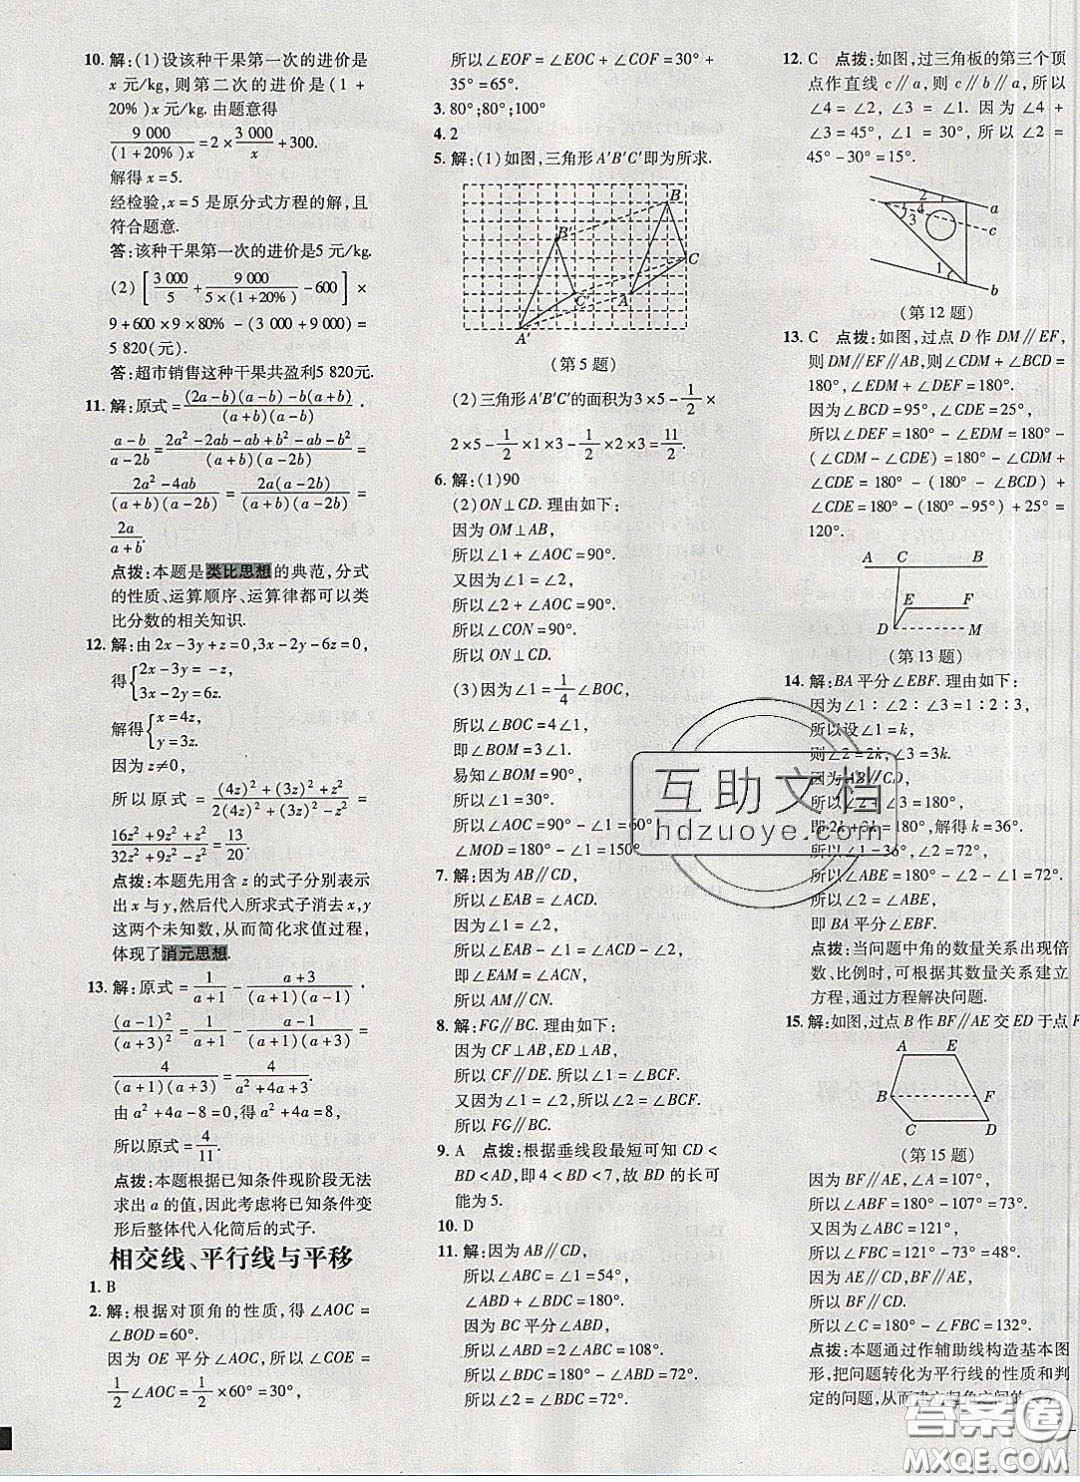 10. 解:(1)设该种干果第一次的进价是
x 元/kg,则第二次的进价是(1 +
20%)x 元/kg. 由题意得
9 000/(1+20%)x = 2 × 3 000/x + 300.
解得 x = 5.
经检验, x = 5 是原分式方程的解,且
符合题意.
答:该种干果第一次的进价是5 元/kg.
(2) [3 000/5 + 9 000/5×(1+20%) - 600] ×
9 + 600 × 9 × 80% - (3 000 + 9 000) =
5 820(元).
答:超市销售这种干果共盈利5 820元.
11. 解:原式 = (2a-b)(a-b)-b(a-b)/(a+b)(a-b) ·
a-b/a-2b = 2a²-2ab-ab+b²-ab-b²/(a+b)(a-2b) =
2a²-4ab/(a+b)(a-2b) = 2a(a-2b)/(a+b)(a-2b) =
2a/a+b.
点拨:本题是类比思想的典范,分式
的性质、运算顺序、运算律都可以类
比分数的相关知识.
12. 解:由 2x-3y+z=0,3x-2y-6z=0,
得{2x-3y=-z,
3x-2y=6z.
解得{x=4z,
y=3z.
因为 z≠0,
所以原式 = (4z)²+(3z)²+z²/2(4z)²+(3z)²-z² =
16z²+9z²+z²/32z²+9z²-z² = 13/20.
点拨:本题先用含 z 的式子分别表示
出 x 与 y,然后代入所求式子消去 x,y
这两个未知数,从而简化求值过程,
体现了消元思想.
13. 解:原式 = 1/a+1 - a+3/(a+1)(a-1) ·
(a-1)²/(a+1)(a+3) = 1/a+1 - a-1/(a+1)(a+3) =
4/(a+1)(a+3) = 4/a²+4a+3.
由 a²+4a-8=0,得 a²+4a=8,
所以原式 = 4/11.
点拨:本题根据已知条件现阶段无法
求出 a 的值,因此考虑将已知条件变
形后整体代入化简后的式子.
相交线、平行线与平移
1. B
2. 解:根据对顶角的性质,得 ∠AOC =
∠BOD = 60°.
因为 OE 平分 ∠AOC,所以 ∠COE =
1/2 ∠AOC = 1/2 × 60° = 30°,
所以 ∠EOF = ∠EOC + ∠COF = 30° +
35° = 65°.
3. 80°;80°;100°
4. 2
5. 解:(1)如图,三角形 A′B′C′即为所求.
B
B′
C
C′
A
A′
(第 5 题)
(2)三角形 A′B′C′的面积为 3×5 - 1/2 ×
2×5 - 1/2 ×1×3 - 1/2 ×2×3 = 11/2.
6. 解:(1)90
(2)ON⊥CD. 理由如下:
因为 OM⊥AB,
所以 ∠1 + ∠AOC = 90°.
又因为 ∠1 = ∠2,
所以 ∠2 + ∠AOC = 90°,
所以 ∠CON = 90°,
所以 ON⊥CD.
(3)因为 ∠1 = 1/4 ∠BOC,
所以 ∠BOC = 4∠1,
即 ∠BOM = 3∠1.
易知 ∠BOM = 90°,
所以 ∠1 = 30°.
所以 ∠AOC = 90° - ∠1 = 60°,
∠MOD = 180° - ∠1 = 150°.
7. 解:因为 AB∥CD,
所以 ∠EAB = ∠ACD.
因为 ∠1 = ∠2,
所以 ∠EAB - ∠1 = ∠ACD - ∠2,
即 ∠EAM = ∠ACN,
所以 AM∥CN.
8. 解:FG∥BC. 理由如下:
因为 CF⊥AB,ED⊥AB,
所以 CF∥DE,所以 ∠1 = ∠BCF.
又因为 ∠1 = ∠2,所以 ∠2 = ∠BCF.
所以 FG∥BC.
9. A 点拨:根据垂线段最短可知 CD <
BD < AD,即 4 < BD < 7,故 BD 的长可
能为 5.
10. D
11. 解:因为 AB∥CD,
所以 ∠ABC = ∠1 = 54°,
∠ABD + ∠BDC = 180°.
因为 BC 平分 ∠ABD,
所以 ∠ABD = 2∠ABC = 108°,
所以 ∠BDC = 180° - ∠ABD = 72°,
所以 ∠2 = ∠BDC = 72°.
12. C 点拨:如图,过三角板的第三个顶
点作直线 c∥a,则 c∥b∥a,所以
∠4 = ∠2, ∠3 = ∠1. 因为 ∠4 +
∠3 = 45°, ∠1 = 30°, 所以 ∠2 =
45° - 30° = 15°.
2
4
3
1
a
c
b
(第 12 题)
13. C 点拨:如图,过点 D 作 DM∥EF,
则 DM∥EF∥AB,则∠CDM + ∠BCD =
180°,∠EDM + ∠DEF = 180°.
因为 ∠BCD = 95°, ∠CDE = 25°,
所以 ∠DEF = 180° - ∠EDM = 180° -
(∠CDM - ∠CDE) = 180° - ∠CDM +
∠CDE = 180° - (180° - ∠BCD) +
∠CDE = 180° - (180° - 95°) + 25° =
120°.
A C B
E F
D M
(第 13 题)
14. 解:BA 平分∠EBF. 理由如下:
因为 ∠1∶∠2∶∠3 = 1∶2∶3,
所以设 ∠1 = k,
则 ∠2 = 2k,∠3 = 3k.
因为 AB∥CD,
所以 ∠2 + ∠3 = 180°,
即 2k + 3k = 180°,解得 k = 36°.
所以 ∠1 = 36°, ∠2 = 72°,
所以 ∠ABE = 180° - ∠2 - ∠1 = 72°.
所以 ∠2 = ∠ABE,
即 BA 平分 ∠EBF.
点拨:当问题中角的数量关系出现倍
数、比例时,可根据其数量关系建立
方程,通过方程解决问题.
15. 解:如图,过点 B 作 BF∥AE 交 ED 于点 F
A E
B F
C D
(第 15 题)
因为 BF∥AE,∠A = 107°,
所以 ∠ABF = 180° - 107° = 73°.
又因为 ∠ABC = 121°,
所以 ∠FBC = 121° - 73° = 48°.
因为 BF∥AE,AE∥CD,
所以 BF∥CD,
所以 ∠C = 180° - ∠FBC = 132°.
点拨:本题通过作辅助线构造基本图
形,把问题转化为平行线的性质和判
定的问题,从而建立起角之间的关系
互助文档
hdzuoye.com
答案圈
MXQE.COM